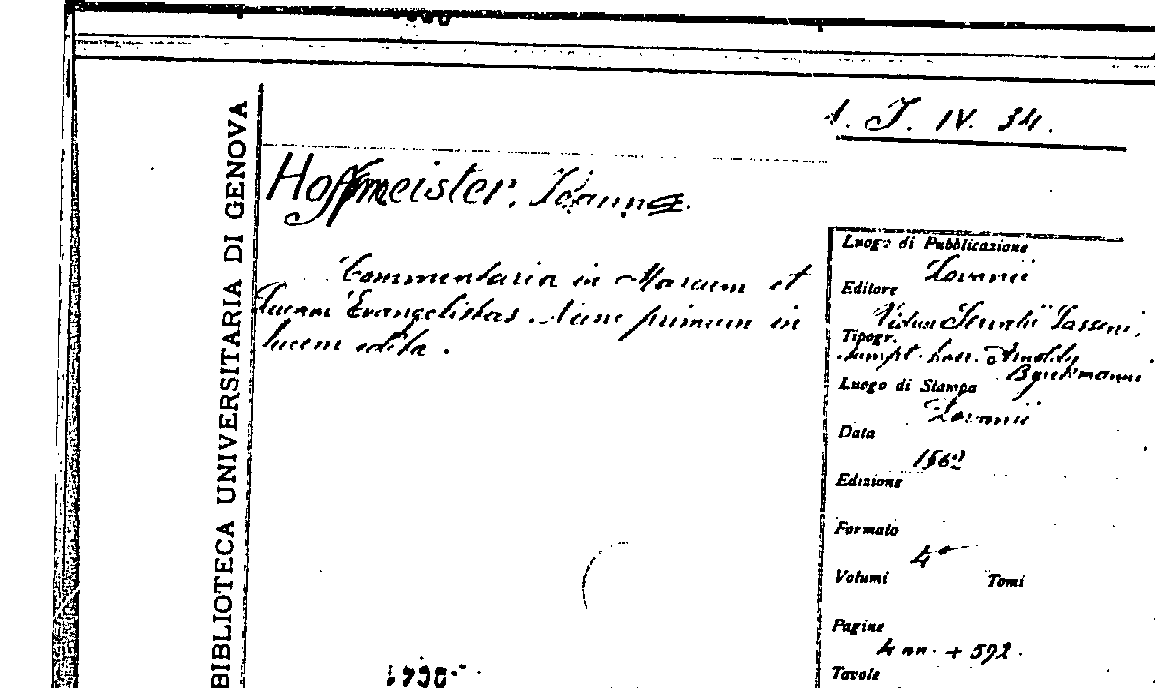 1. J. IV. 34.
BIBLIOTECA UNIVERSITARIA DI GENOVA
Hoffmeister, Joannes.
Commentaria in Marcum et
Lucam Evangelistas. Nunc primum in
lucem edita.
Luogo di Pubblicazione
Lovanii
Editore
Vidua Servatii Sasseni,
Tipogr.
sumpt. haer. Arnoldi
Byrckmanni
Luogo di Stampa
Lovanii
Data
1562
Edizione
Formato
4°
Volumi Tomi
Pagine
4 nn. + 592.
Tavole